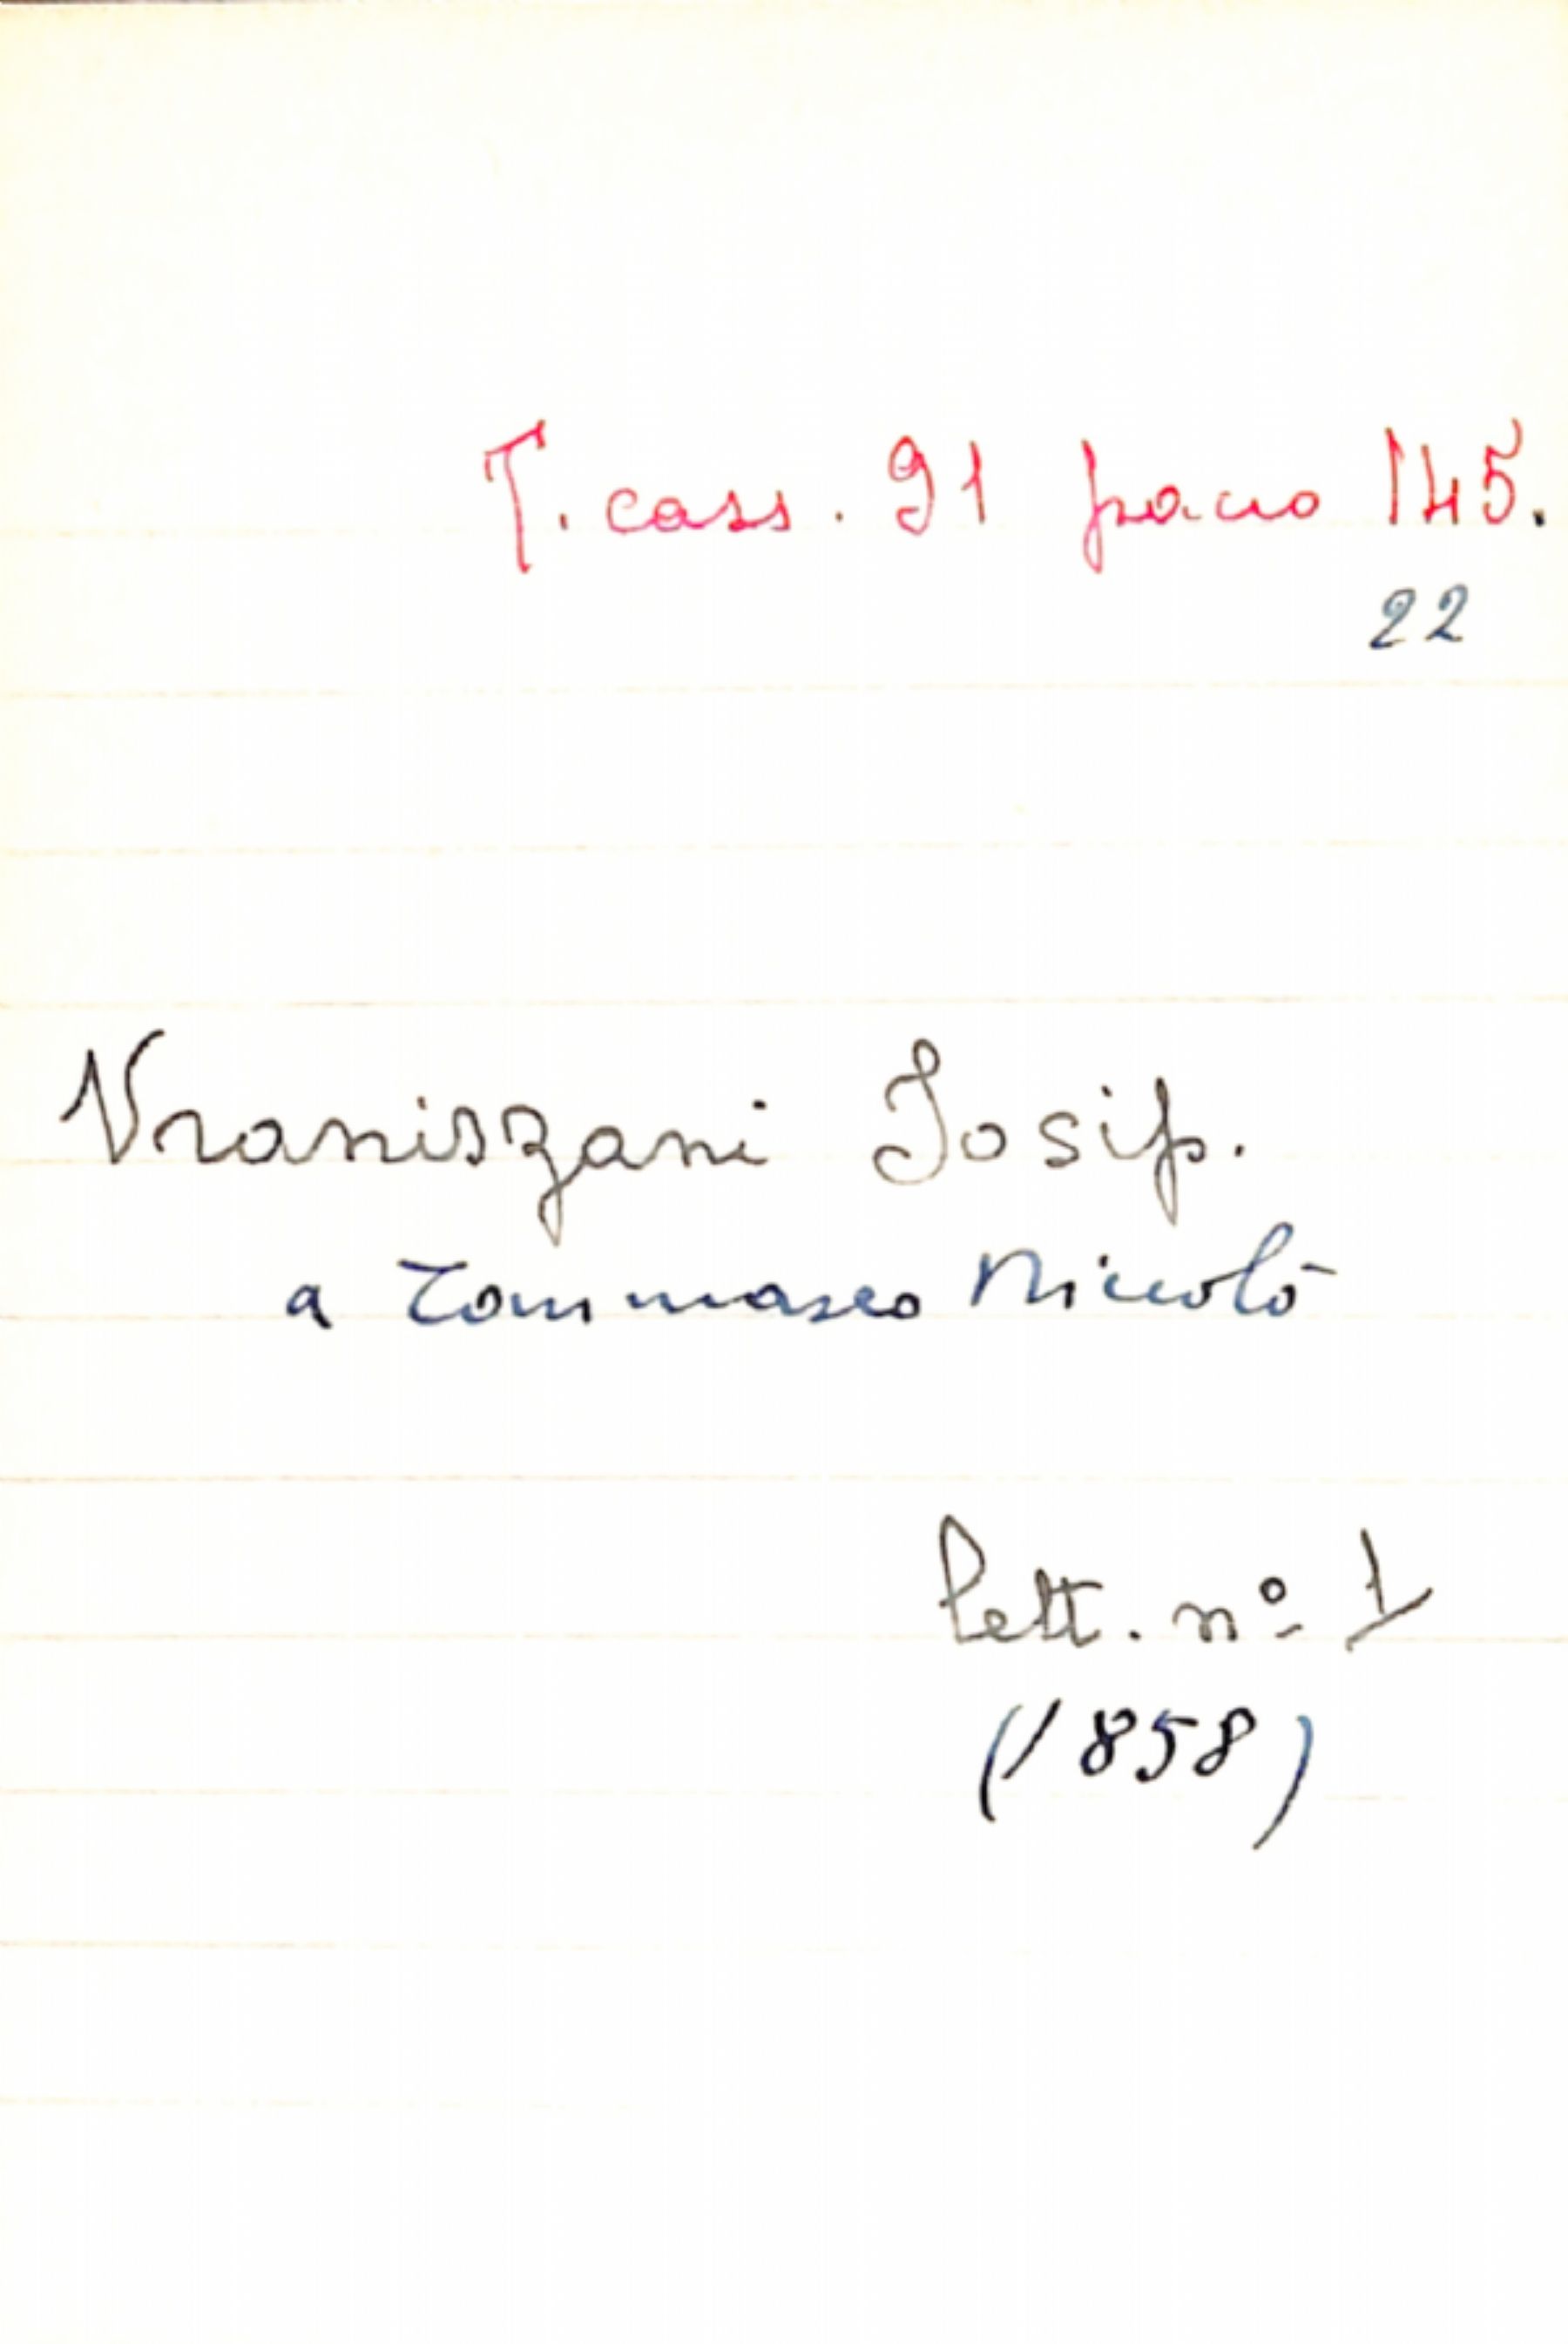 T. cass. 91 pacco 145.
22
Vraniszani Josip.
a Tommaseo Niccolò
lett. nº 1
(1858)